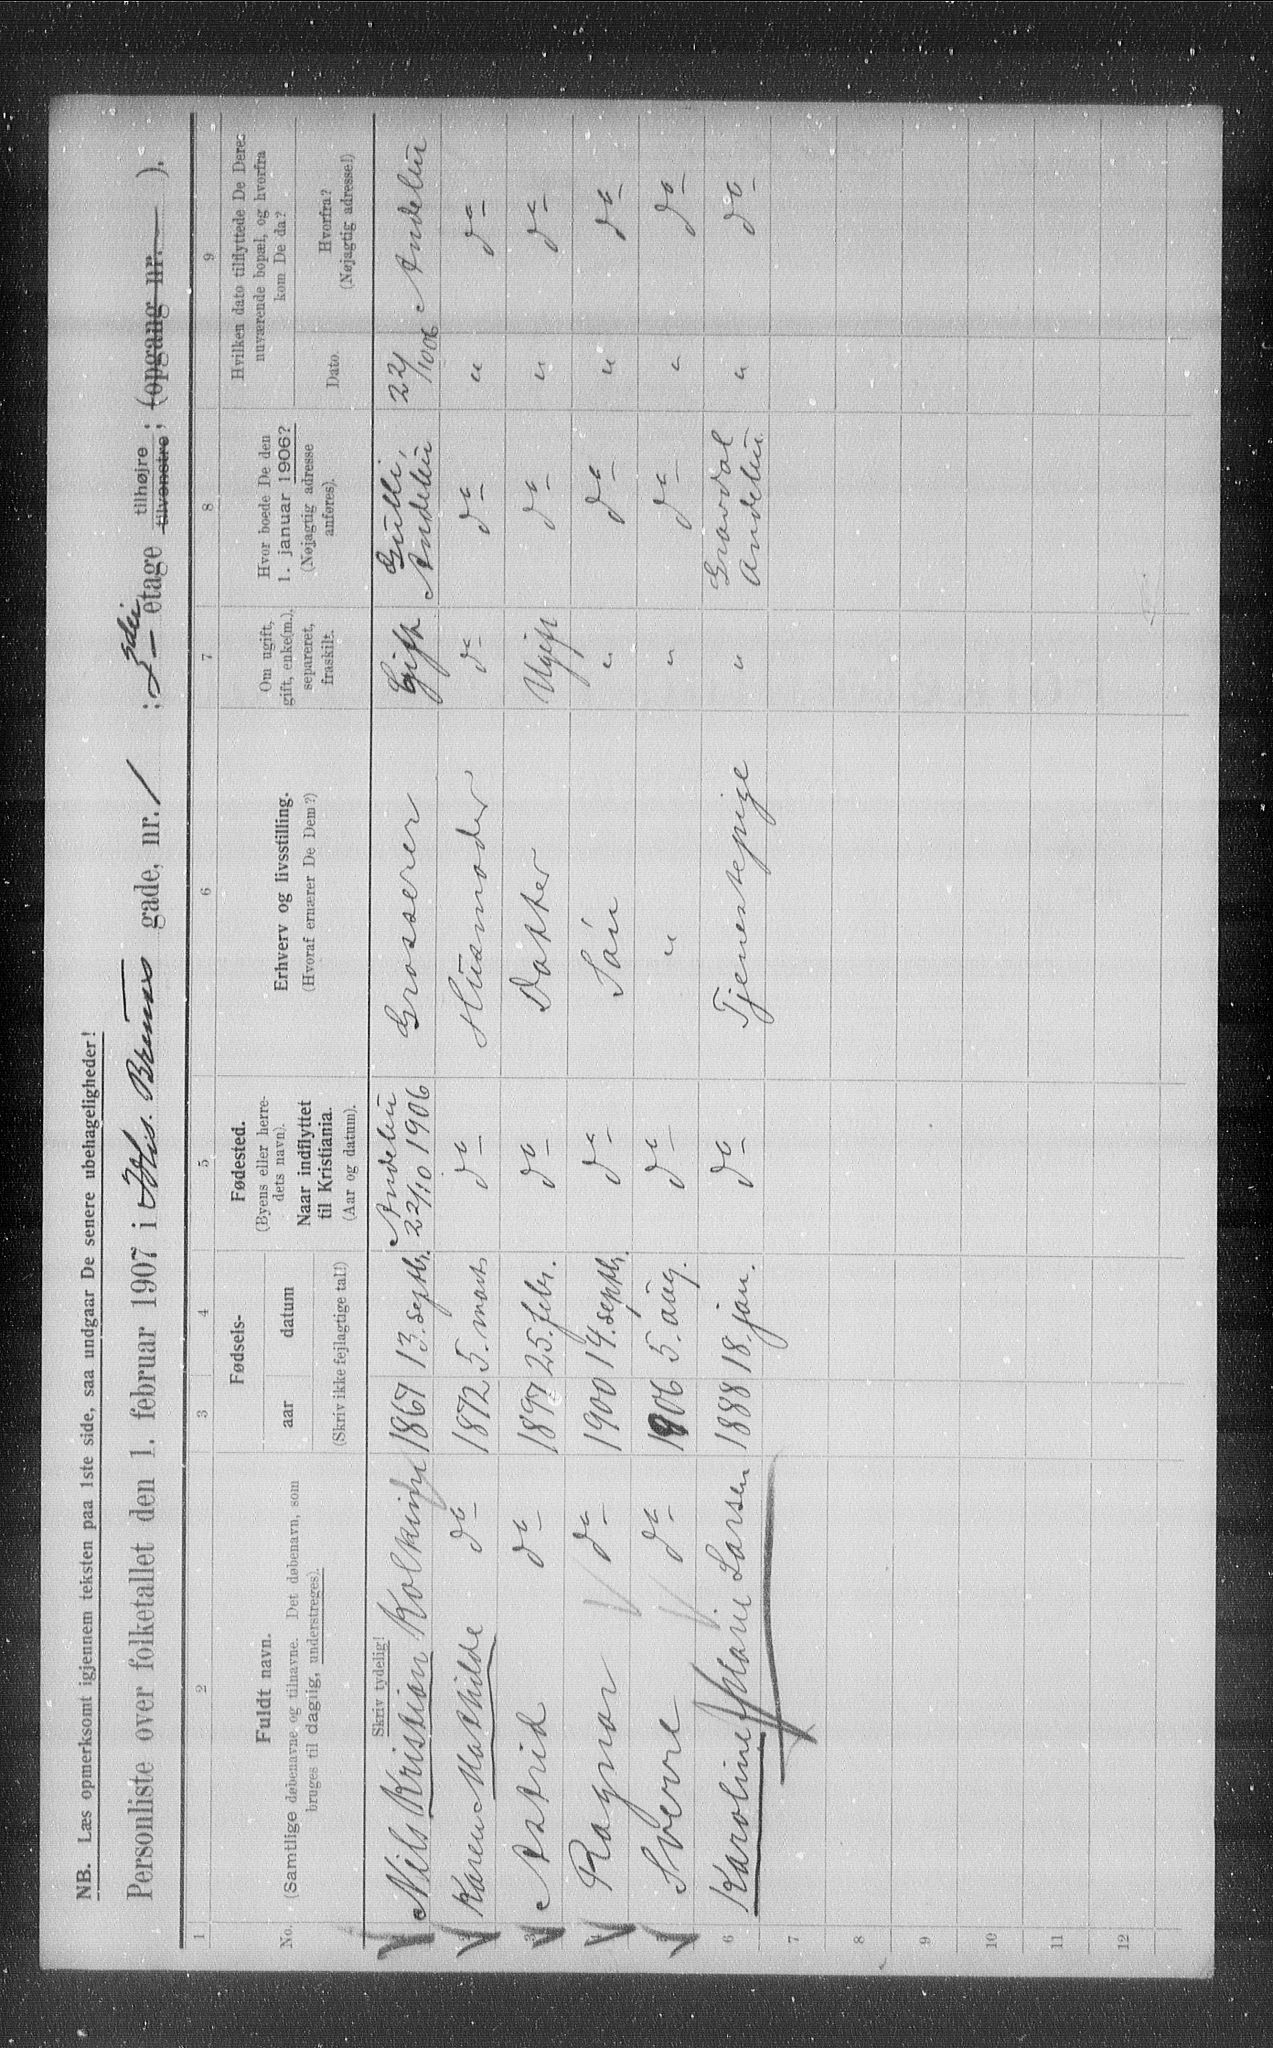 NB. Læs opmerksomt igjennem teksten paa 1ste side, saa undgaar De senere ubehageligheder!
Personliste over folketallet den 1. februar 1907 i Joh. Bruuns gade, nr. 1 ; 3die etage tilhøjre tilvenstre; (opgang nr. — ).
1 2 3 4 5 6 7 8 9
No.
Fuldt navn.
(Samtlige døbenavne og tilnavne. Det døbenavn, som
bruges til daglig, understreges).
Skriv tydelig!
Fødsels-
aar datum
(Skriv ikke fejlagtige tal!)
Fødested.
(Byens eller herre-
dets navn).
Naar indflyttet
til Kristiania.
(Aar og datum).
Erhverv og livsstilling.
(Hvoraf ernærer De Dem?)
Om ugift,
gift, enke(m.),
separeret,
fraskilt.
Hvor boede De den
1. januar 1906?
(Nøjagtig adresse
anføres).
Hvilken dato tilflyttede De Deres
nuværende bopæl, og hvorfra
kom De da?
Dato.
Hvorfra?
(Nøjagtig adresse!)
1 Nils Kristian Kolkinn 1867 13. septbr. Andebu 22/10 1906 Grosserer Gift Gulli, Andebu 22/10 06 Andebu
2 Karen Mathilde do 1872 5. marts do Husmoder do do " do
3 Astrid do 1897 25. febr. do Datter Ugift do " do
4 Ragnar do 1900 14. septbr. do Søn " do " do
5 Sverre do 1906 5. aug. do " " do " do
6 Karoline Marie Larsen 1888 18. jan. do Tjenestepige " Gravdal Andebu " do
7
8
9
10
11
12